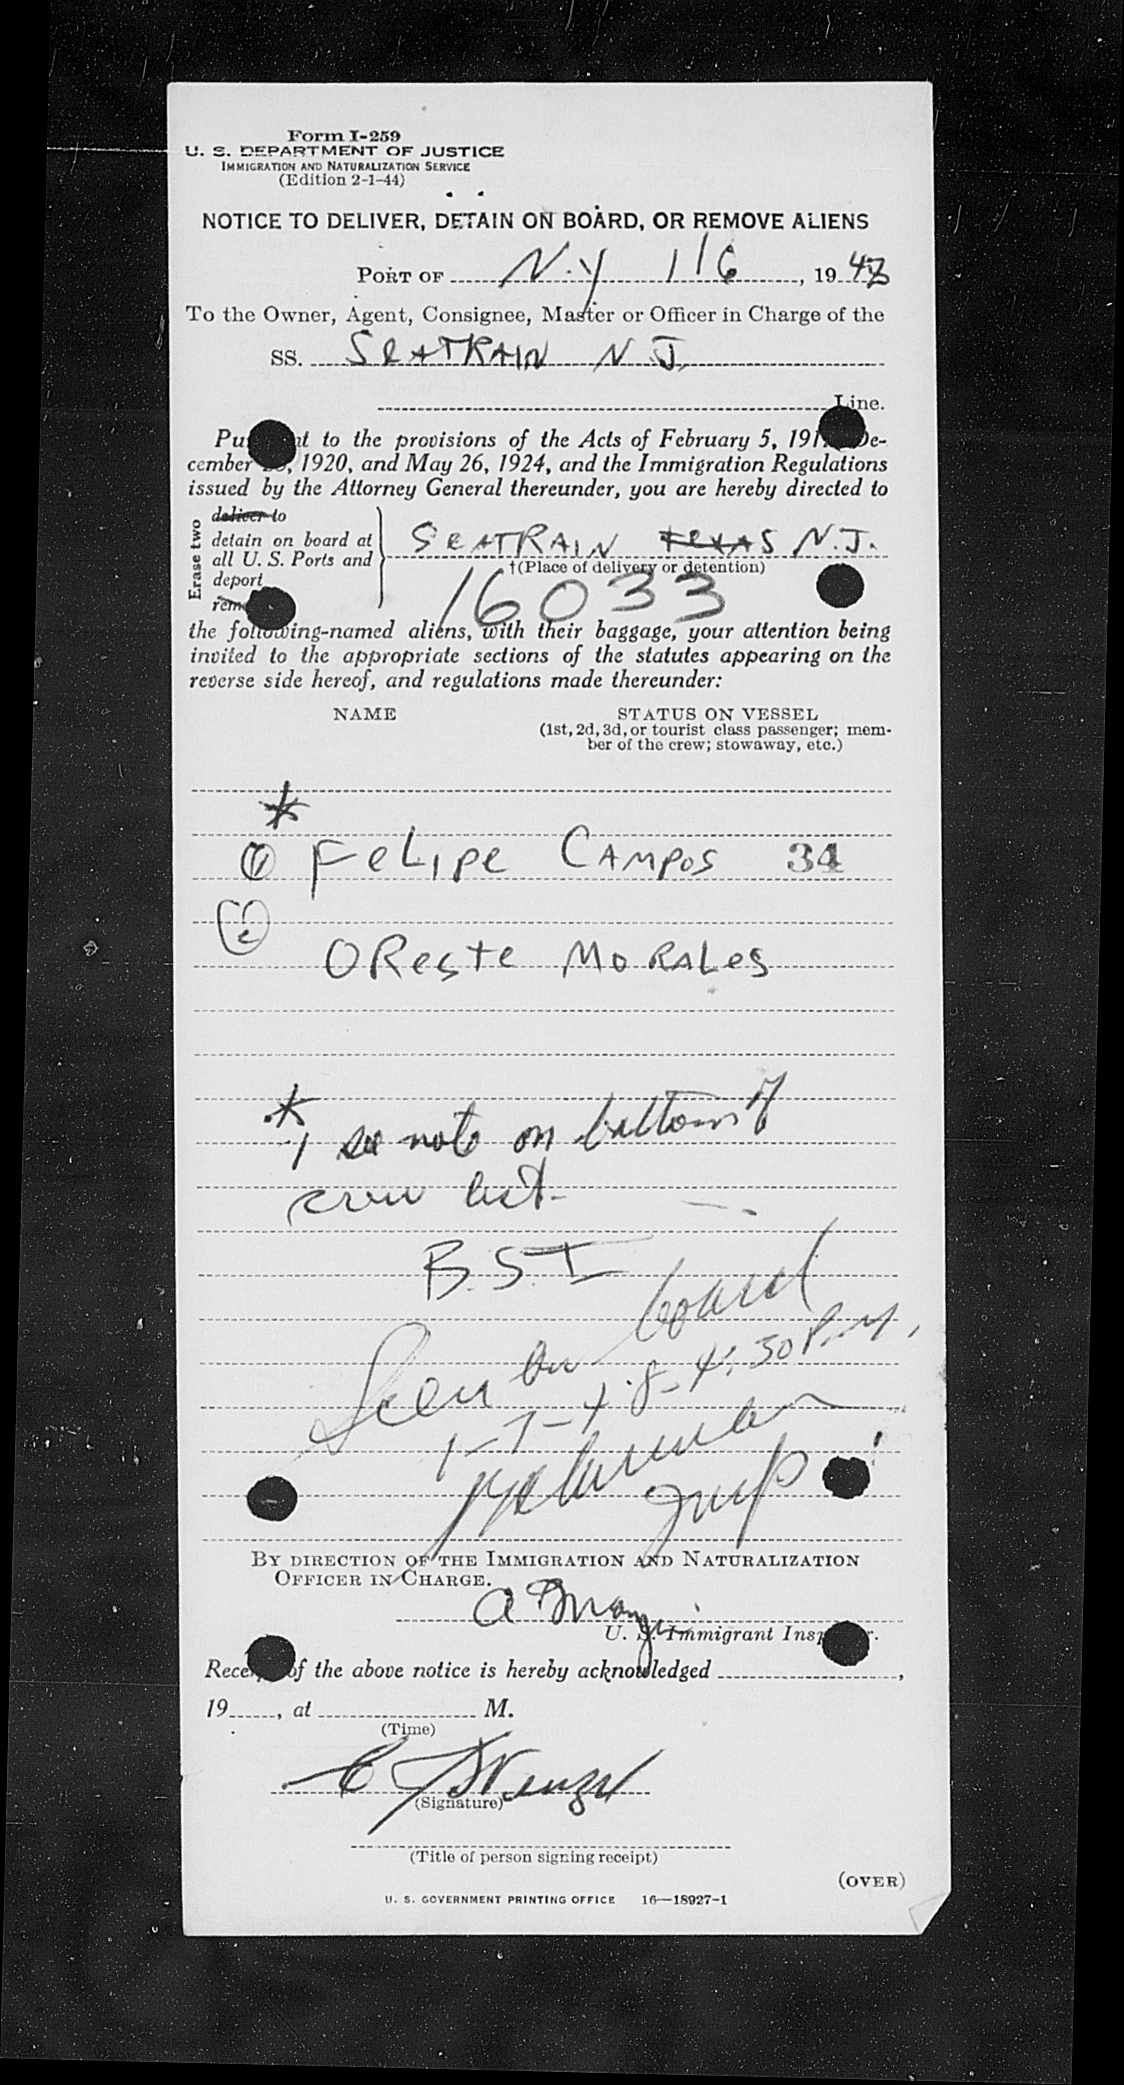 Form I-259
U. S. DEPARTMENT OF JUSTICE
IMMIGRATION AND NATURALIZATION SERVICE
(Edition 2-1-44)
NOTICE TO DELIVER, DETAIN ON BOARD, OR REMOVE ALIENS
PORT OF N.Y 1/6, 19 48
To the Owner, Agent, Consignee, Master or Officer in Charge of the
SS. SEATRAIN N.J.
Line.
to the provisions of the Acts of February 5, De-
cember 1920, and May 26, 1924, and the Immigration Regulations
issued by the Attorney General thereunder, you are hereby directed to
Erase two
deliver to
detain on board at
all U. S. Ports and
deport
SEATRAIN TEXAS N.J.
†(Place of delivery or detention)
16033
the following-named aliens, with their baggage, your attention being
invited to the appropriate sections of the statutes appearing on the
reverse side hereof, and regulations made thereunder:
NAME STATUS ON VESSEL
(1st, 2d, 3d, or tourist class passenger; mem-
ber of the crew; stowaway, etc.)
*
1 FELIPE CAMPOS 34
2
ORESTE MORALES
* 1 see note on bottom of
crew list-
B.S.I
Seen on board
1-7-48-4:30 P.M.
BY DIRECTION OF THE IMMIGRATION AND NATURALIZATION
OFFICER IN CHARGE.
U. S. Immigrant
of the above notice is hereby acknowledged ,
19 , at M.
(Time)
(Signature)
(Title of person signing receipt)
(OVER)
U. S. GOVERNMENT PRINTING OFFICE 16—18927-1